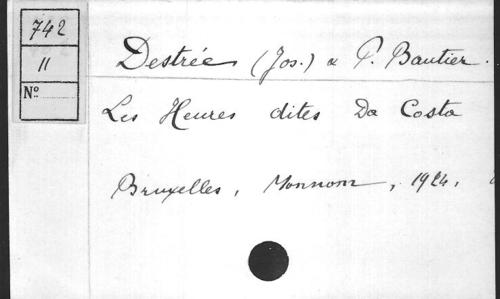 742
11
Nº
Destrée (Jos.) & P. Bautier.
Les Heures dites Da Costa
Bruxelles, Monnom, 1924,